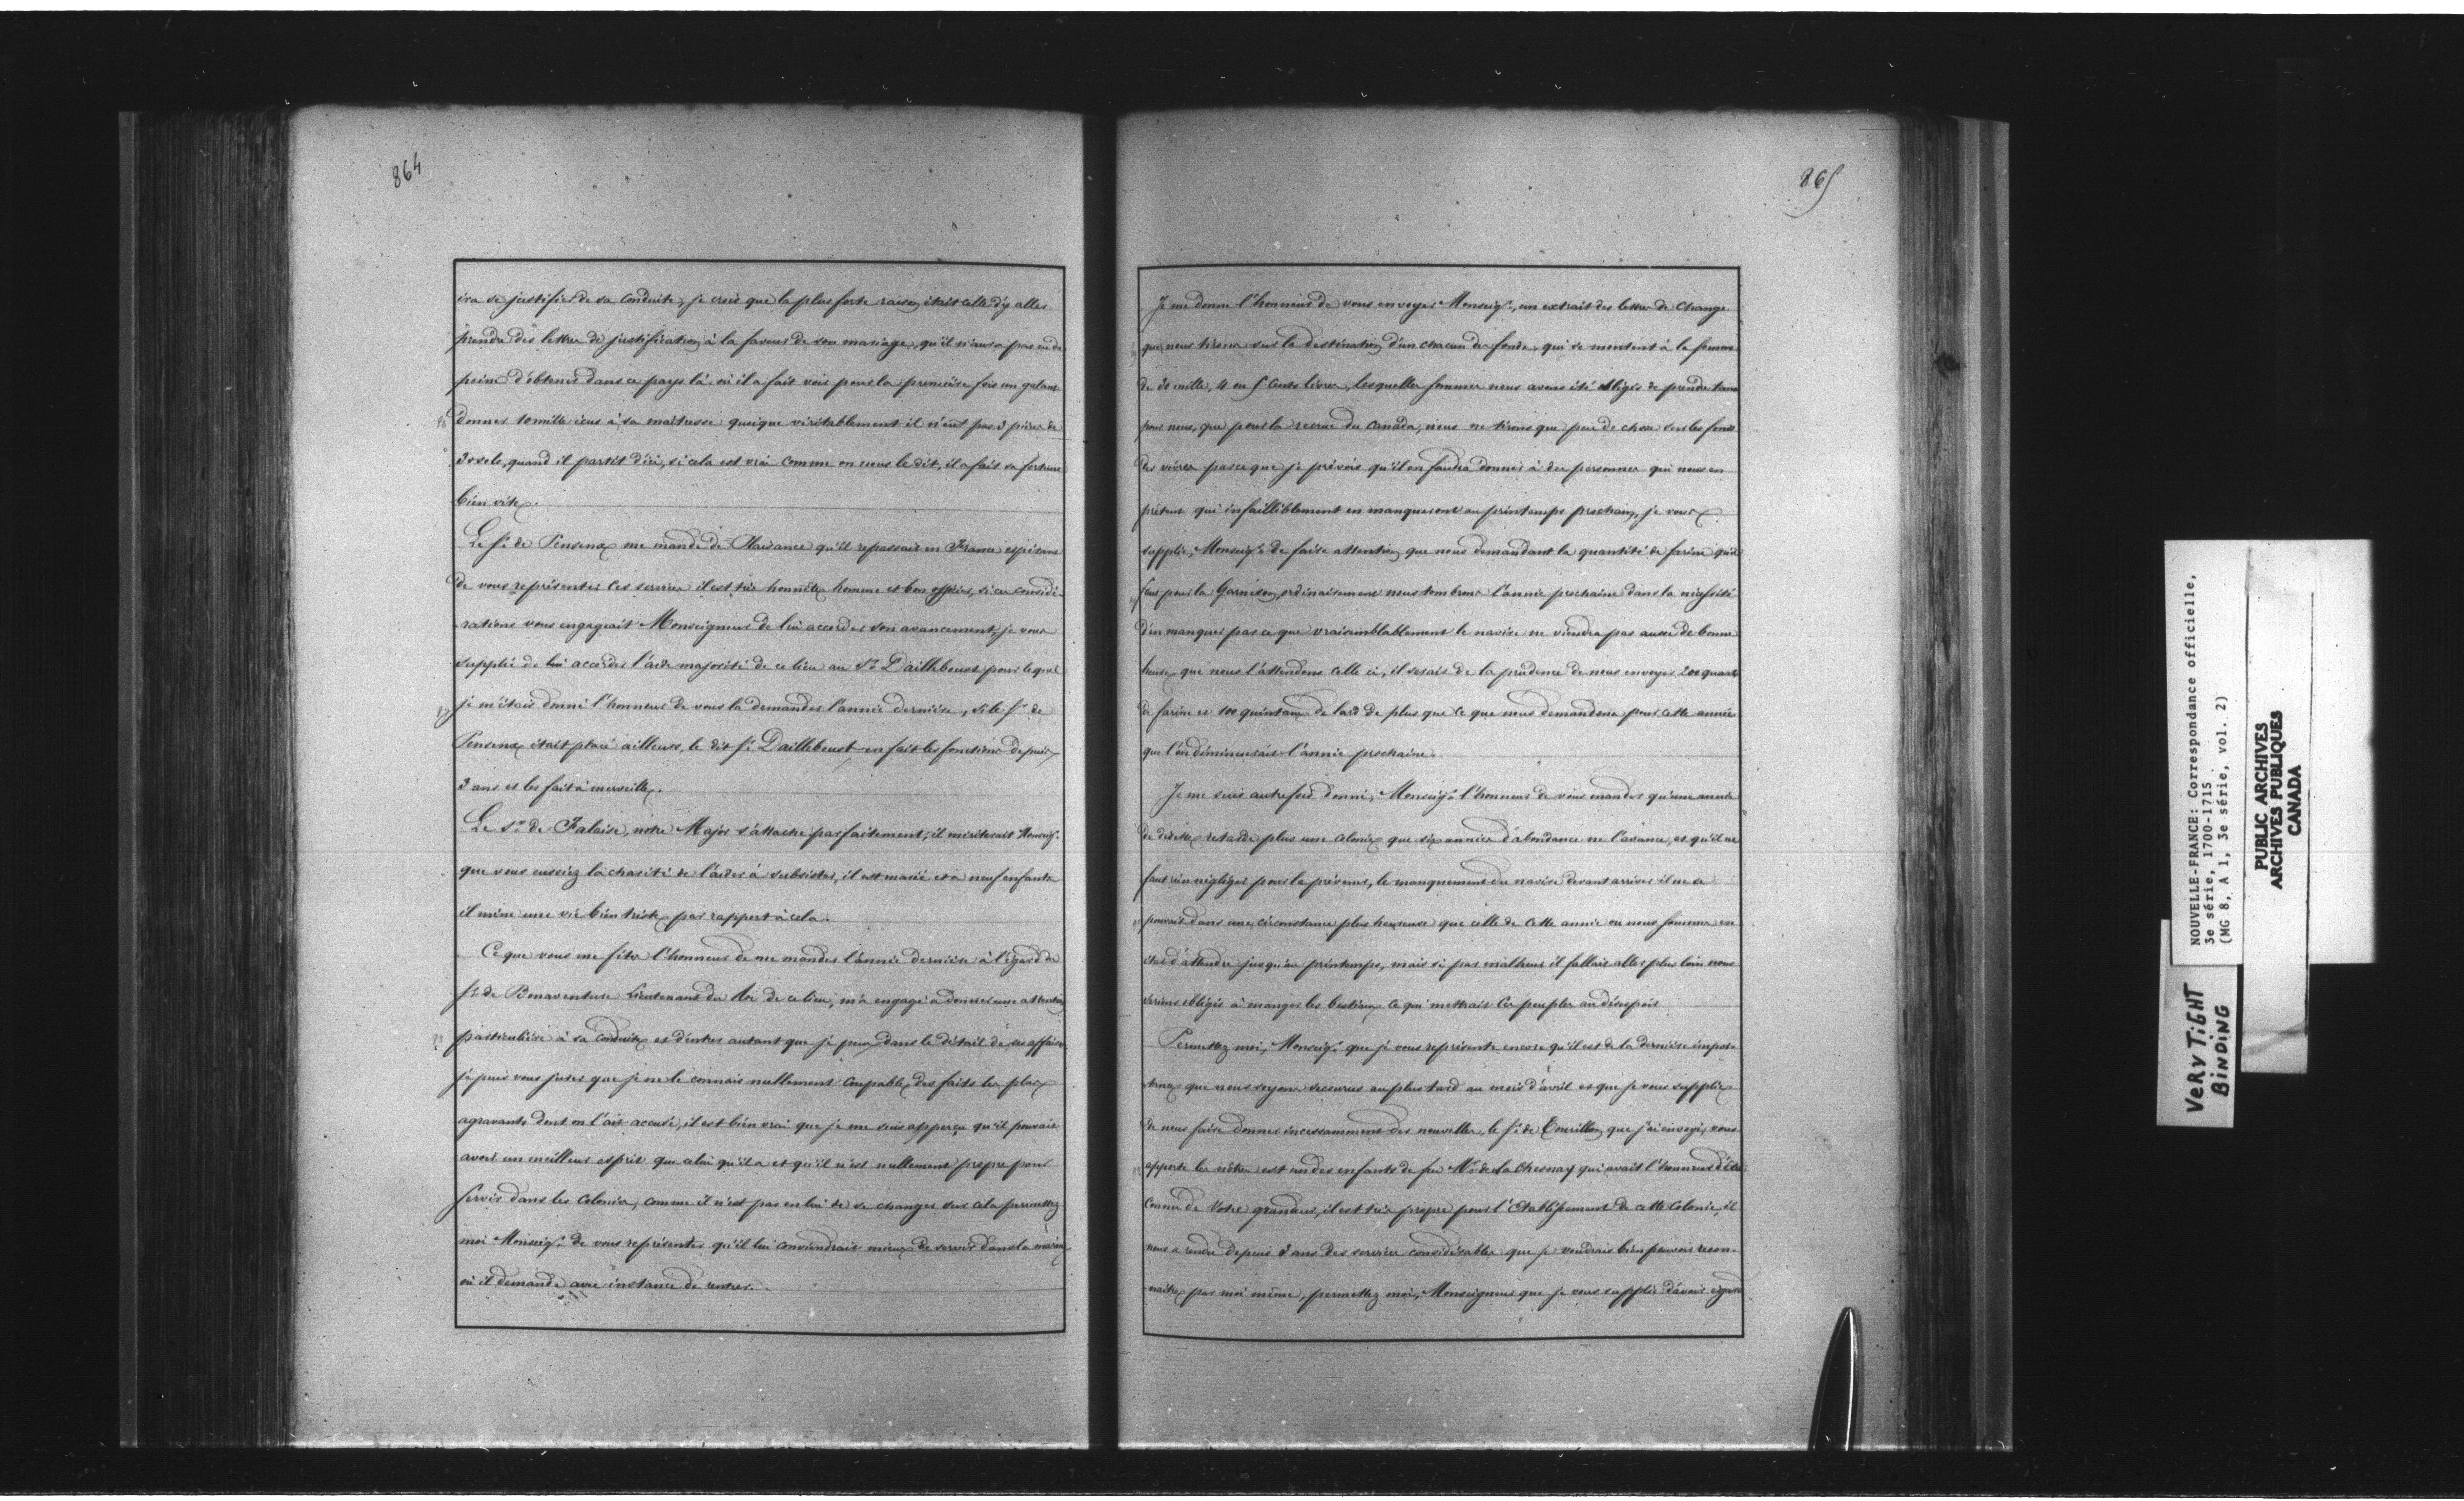 864
ira se justifier de sa conduite, je crois que la plus forte raison était celle d'y aller
prendre des lettres de justification à la faveur de son mariage, qu'il n'aura pas eu de
peine d'obtenir dans ce pays là où il a fait voir pour la première fois un galant
donner 10 mille écus à sa maîtresse quoique véritablement il n'eut pas 3 pièces de
30 sols, quand il partit d'ici, si cela est vrai comme on nous le dit, il a fait sa fortune
bien vite.
Le Sr. de Pensens me mande de Plaisance qu'il repassait en France espérant
de vous représenter ces services il est très honnête homme et bon officier, si ces considé-
rations vous engageait Monseigneur de lui accorder son avancement, je vous
supplie de lui accorder l'aide majorité de ce lieu au Sr. Dailleboust pour lequel
je m'étais donné l'honneur de vous la demander l'année dernière, si le Sr. de
Pensens était placé ailleurs, le dit Sr. Dailleboust en fait les fonctions depuis
3 ans et les fait à merveille.
Le Sr. de Falaise, notre Major s'attache parfaitement; il mériterait Monseigr.
que vous eussiez la charité de l'aider à subsister, il est marié et a neuf enfants
il mène une vie bien triste par rapport à cela.
Ce que vous me fites l'honneur de me mander l'année dernière à l'égard de
Sr. de Bonaventure Lieutenant du Roi de ce lieu, m'a engagé à donner une attention
particulière à sa conduite et d'entrer autant que je peux dans le détail de ses affaires
je puis vous jurer que je ne le connais nullement coupable des faits les plus
agravants dont on l'ait accusé, il est bien vrai que je me suis apperçu qu'il pouvait
avoir un meilleur esprit que celui qu'il a et qu'il n'est nullement propre pour
servir dans les colonies, comme il n'est pas en lui de se changer sur cela permettez
moi Monseigr. de vous représenter qu'il lui conviendrait mieux de servir dans la marine
où il demande avec instance de rentrer.
865
Je me donne l'honneur de vous envoyer Monseigr., un extrait des lettres de change
que nous tirons sur la destination d'un chacun des fonds, qui se montent à la somme
de mille, 4 ou 5 cents livres, lesquelles sommes nous avons été obligés de prendre tant
pour nous, que pour la recrue du Canada, nous ne tirons que peu de chose sur les fonds
des vivres parce que je prévois qu'il en faudra donner à des personnes qui nous en
prêtent qui infailliblement en manqueront au printemps prochain, je vous
supplie, Monseigr. de faire attention que nous demandant la quantité de farine qu'il
faut pour la Garnison, ordinairement nous tombrons l'année prochaine dans la nécessité
d'en manquer parce que vraisemblablement le navire ne viendra pas aussi de bonne
heure que nous l'attendons celle ci, il serait de la prudence de nous envoyer 200 quarts
de farine et 100 quintaux de lard de plus que ce que nous demandons pour cette année
que l'on diminuerait l'année prochaine.
Je me suis autrefois donné, Monseigr. l'honneur de vous mander qu'une année
de disette retarde plus une colonie que six années d'abondance ne l'avance, et qu'il ne
faut rien négliger pour le prévenir, le manquement du navire devant arriver il ne se
pouvait dans une circonstance plus heureuse que celle de cette année ou nous sommes en
état d'attendre jusqu'au printemps, mais si par malheur il fallait aller plus loin nous
serions obligés à manger les bestiaux ce qui mettrait ces peuples au désespoir
Permettez moi, Monseigr. que je vous représente encore qu'il est de la dernière impor-
tance que nous soyons secourus au plus tard au mois d'avril et que je vous supplie
de nous faire donner incessamment des nouvelles, le Sr. de Courillon que j'ai envoyé, vous
apporte les nôtres est un des enfants de feu Mr. de la Chesnay qui avait l'honneur d'être
connu de Votre grandeur, il est très propre pour l'Etablissement de cette Colonie, il
nous a rendu depuis 3 ans des services considérables que je voudrais bien pouvoir recon-
naître par moi même, permettez moi, Monseigneur que je vous supplie d'avoir égard
NOUVELLE-FRANCE: Correspondance officielle,
3e série, 1700-1715
(MG 8, A 1, 3e série, vol. 2)
PUBLIC ARCHIVES
ARCHIVES PUBLIQUES
CANADA
VERY TIGHT
BINDING